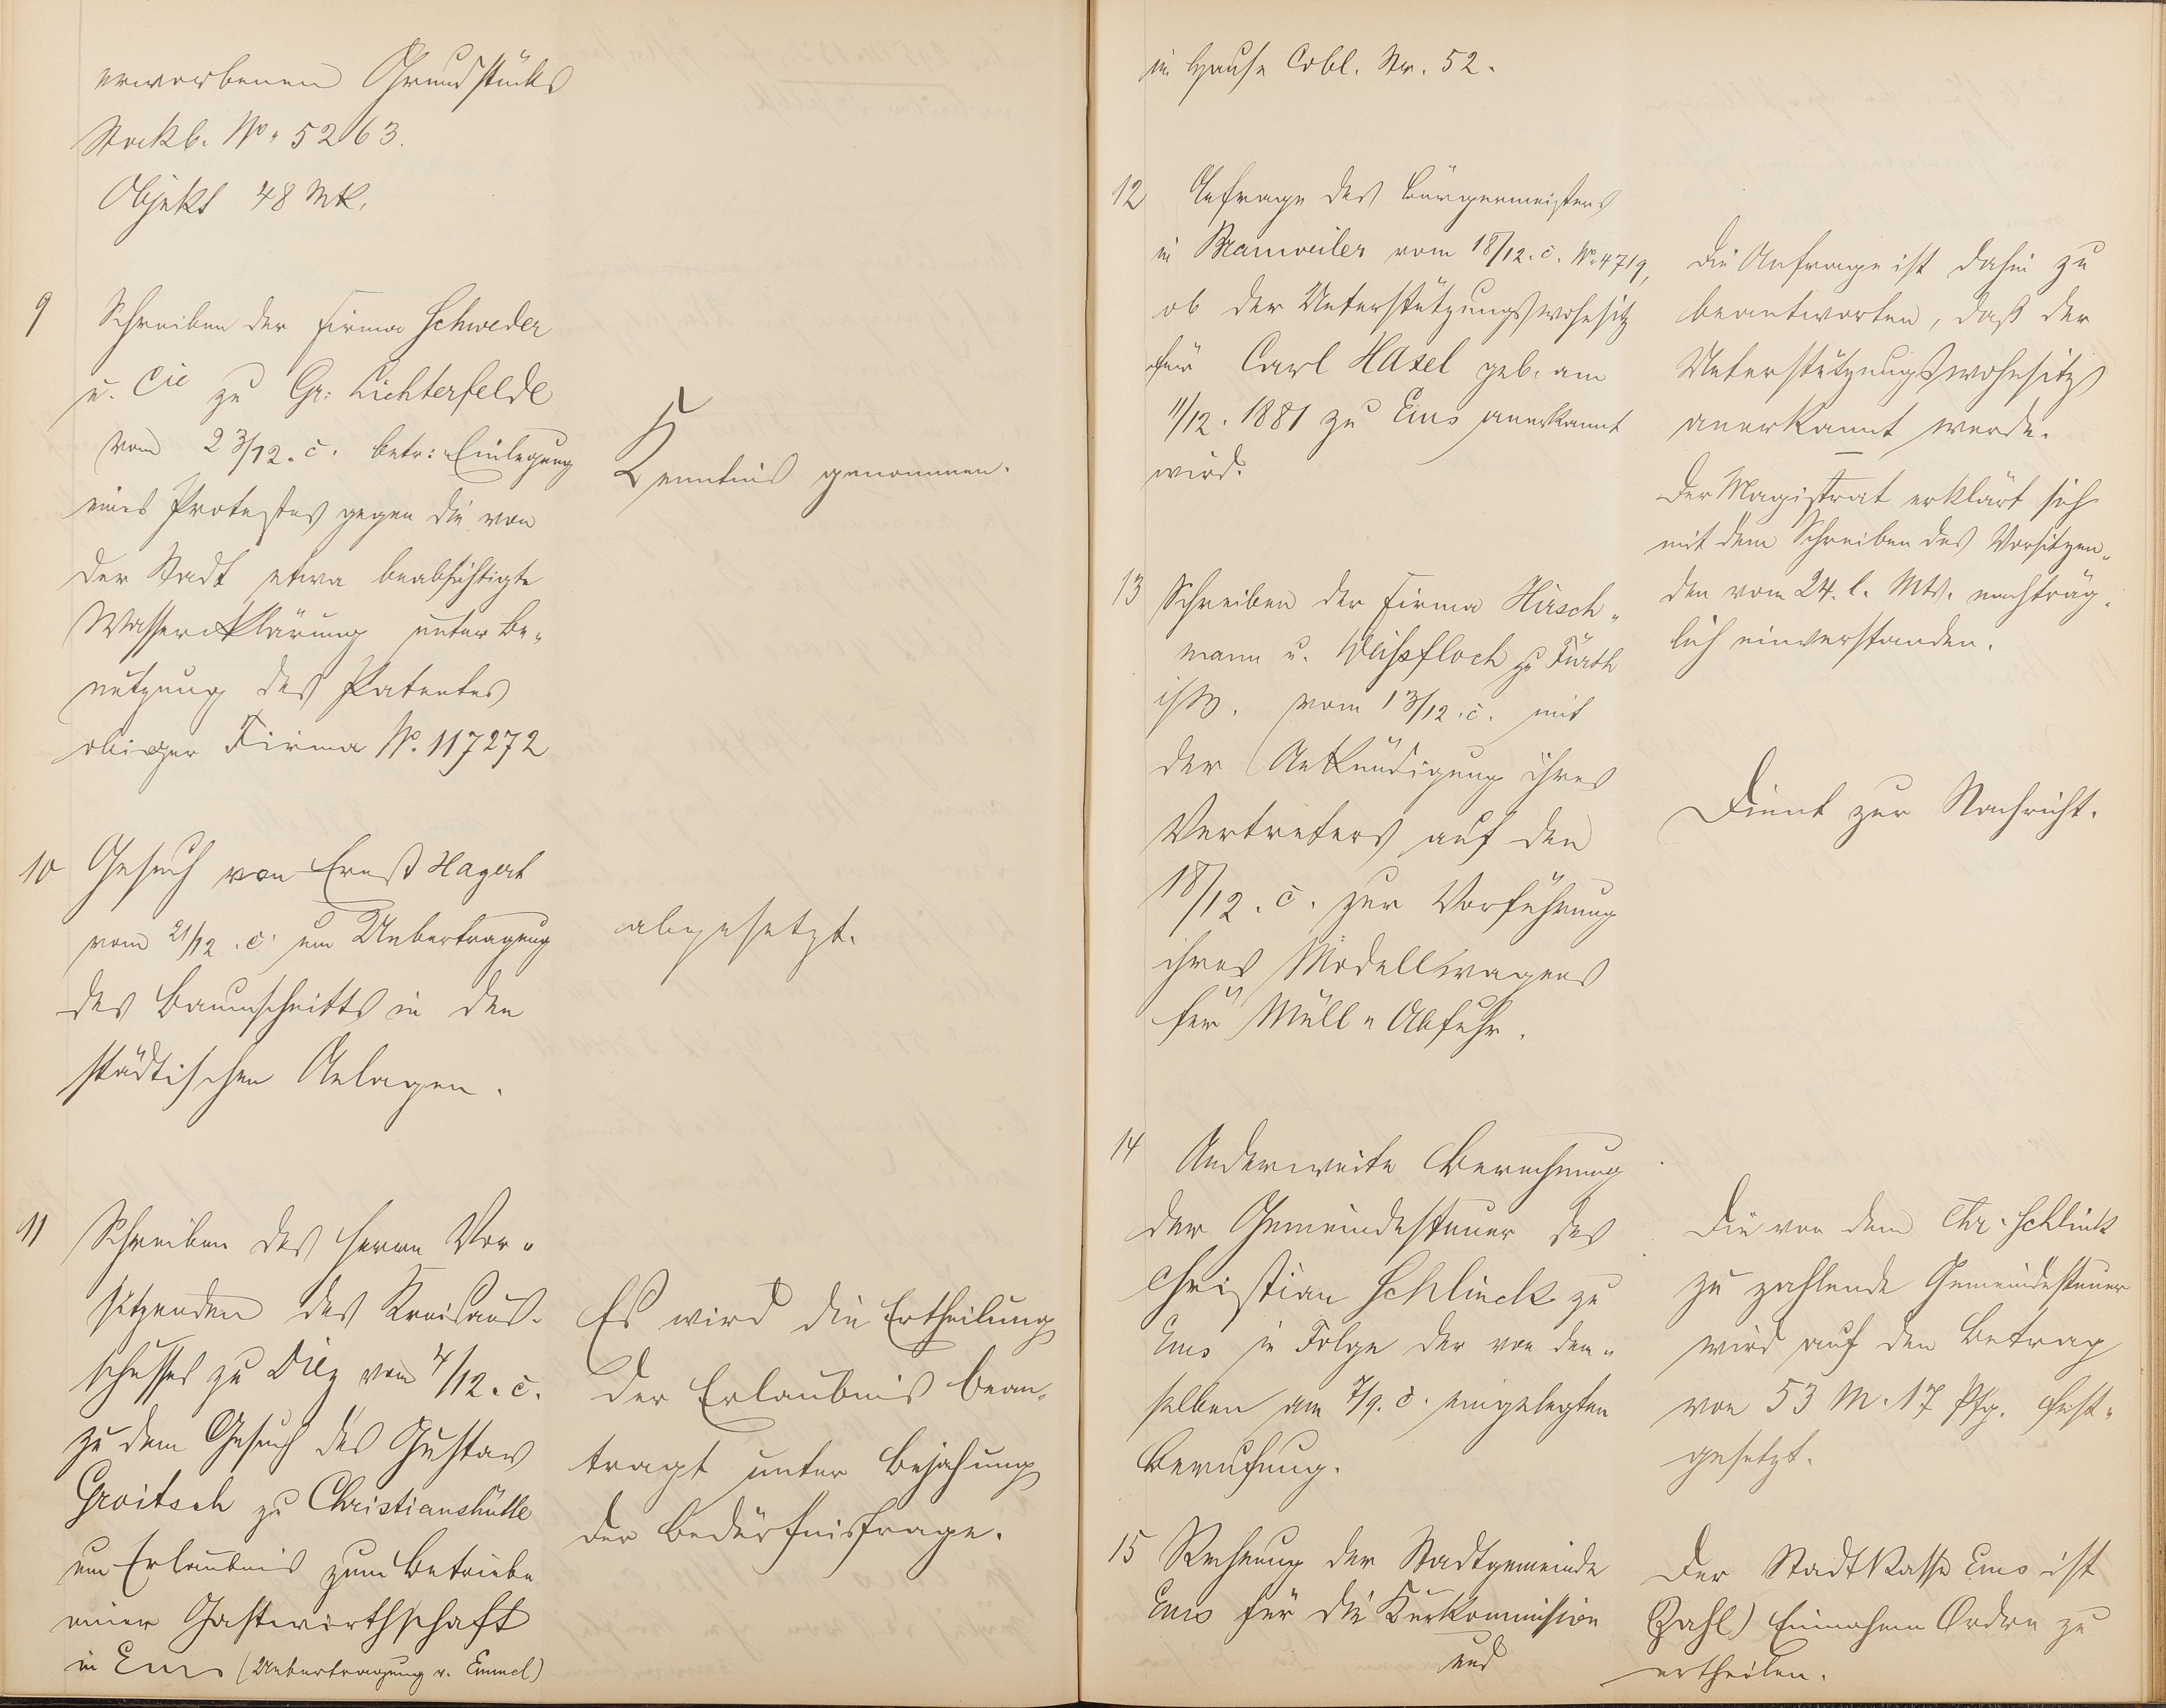 erworbenen Grundstücks
Stockb. No. 5263.
Objekt 48 Mk.
9 Schreiben der Firma Schweder
u. Cie zu Gr: Lichterfelde
vom 23/12. c. betr: Einlegung
eines Protestes gegen die von
der Stadt etwa beabsichtigte
Wasserklärung unter Be-
nutzung des Patentes
obiger Firma No. 117272
Kenntnis genommen.
10 Gesuch von Ernst Hagert
vom 21/12. c. um Uebertragung
des Baumschnitts in den
städtischen Anlagen.
abgesetzt.
11 Schreiben des Herrn Vor-
sitzenden des Kreisaus-
schusses zu Diez vom 4/12. c.
zu dem Gesuch des Gustav
Groitsch zu Christianshütte
um Erlaubnis zum Betriebe
einer Gastwirthschaft
in Ems (Uebertragung v. Emmel)
Es wird die Ertheilung
der Erlaubnis bean-
tragt unter Bejahung
der Bedürfnisfrage.
im Hause Cobl. Str. 52.
12 Anfrage des Bürgermeisters
in Brauweiler vom 18/12. c. No. 4719,
ob der Unterstützungswohnsitz
für Carl Hasel geb. am
11/12. 1881 zu Ems anerkannt
wird.
Die Anfrage ist dahin zu
beantworten, daß der
Unterstützungswohnsitz
anerkannt werde.
Der Magistrat erklärt sich
mit dem Schreiben des Vorsitzen-
den vom 24. l. Mts. nachträg-
lich einverstanden.
13 Schreiben der Firma Hirsch-
mann u. Weißfloch zu Fürth
vom 13/12. c. mit
der Ankündigung ihres
Vertreters auf den
18/12. c. zur Vorführung
ihres Modellwagens
für Müll-Abfuhr.
Dient zur Nachricht.
14 Anderweite Berechnung
der Gemeindesteuer des
Christian Schlinck zu
Ems in Folge der von dem-
selben am 7/9. c. eingelegten
Berufung.
Die von dem Chr. Schlink
zu zahlende Gemeindesteuer
wird auf den Betrag
von 53 M. 17 Pfg. fest-
gesetzt.
15 Rechnung der Stadtgemeinde
Ems für die Kurkommission
und
Der Stadtkasse Ems ist
(Zahl) Einnahme Ordre zu
ertheilen.